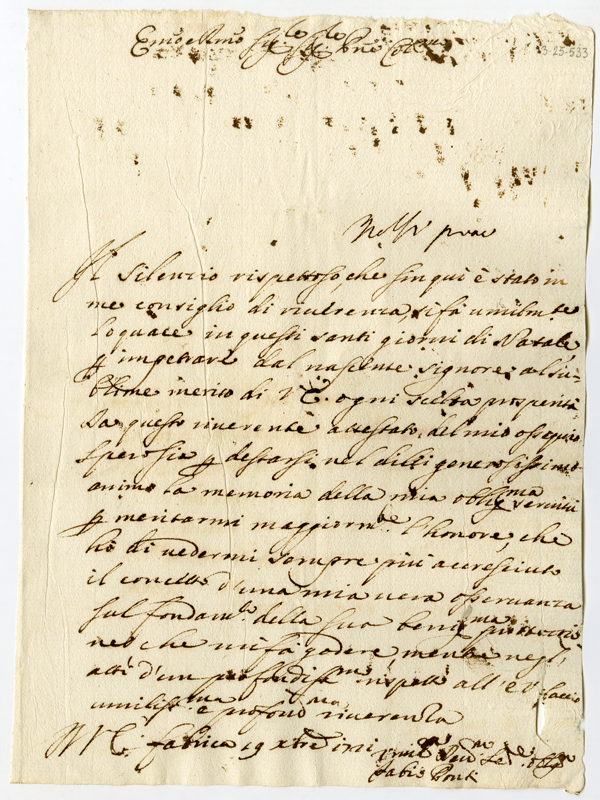 Em̃o e Rmo Sigre Sigre Pne Colmo
3-25-533
Il silenzio rispettoso che sin qui è stato in
me consiglio di riverenza, si fà umilmte
loquace in questi santi giorni di Natale
p impetrare dal nascente Signore al su-
blime merito di V.E. ogni scielta prosperità
Da questo riverente attestato del mio ossequio
spero sia p destarsi nel di lei generosissimo
animo la memoria della mia obligma servitù
p meritarmi maggiormte l'honore, che
hò di vedermi sempre più accresciuto
il concetto d'una mia vera osservanza
sul fondamto della sua benigma
che mi fà godere, mentre negl'
atti d'un profondissmo rispetto all'E.V. faccio
umilissma e profondma riverenza
Di V.E. Fabrica 19 Xbre 1721
Fabio Ponti